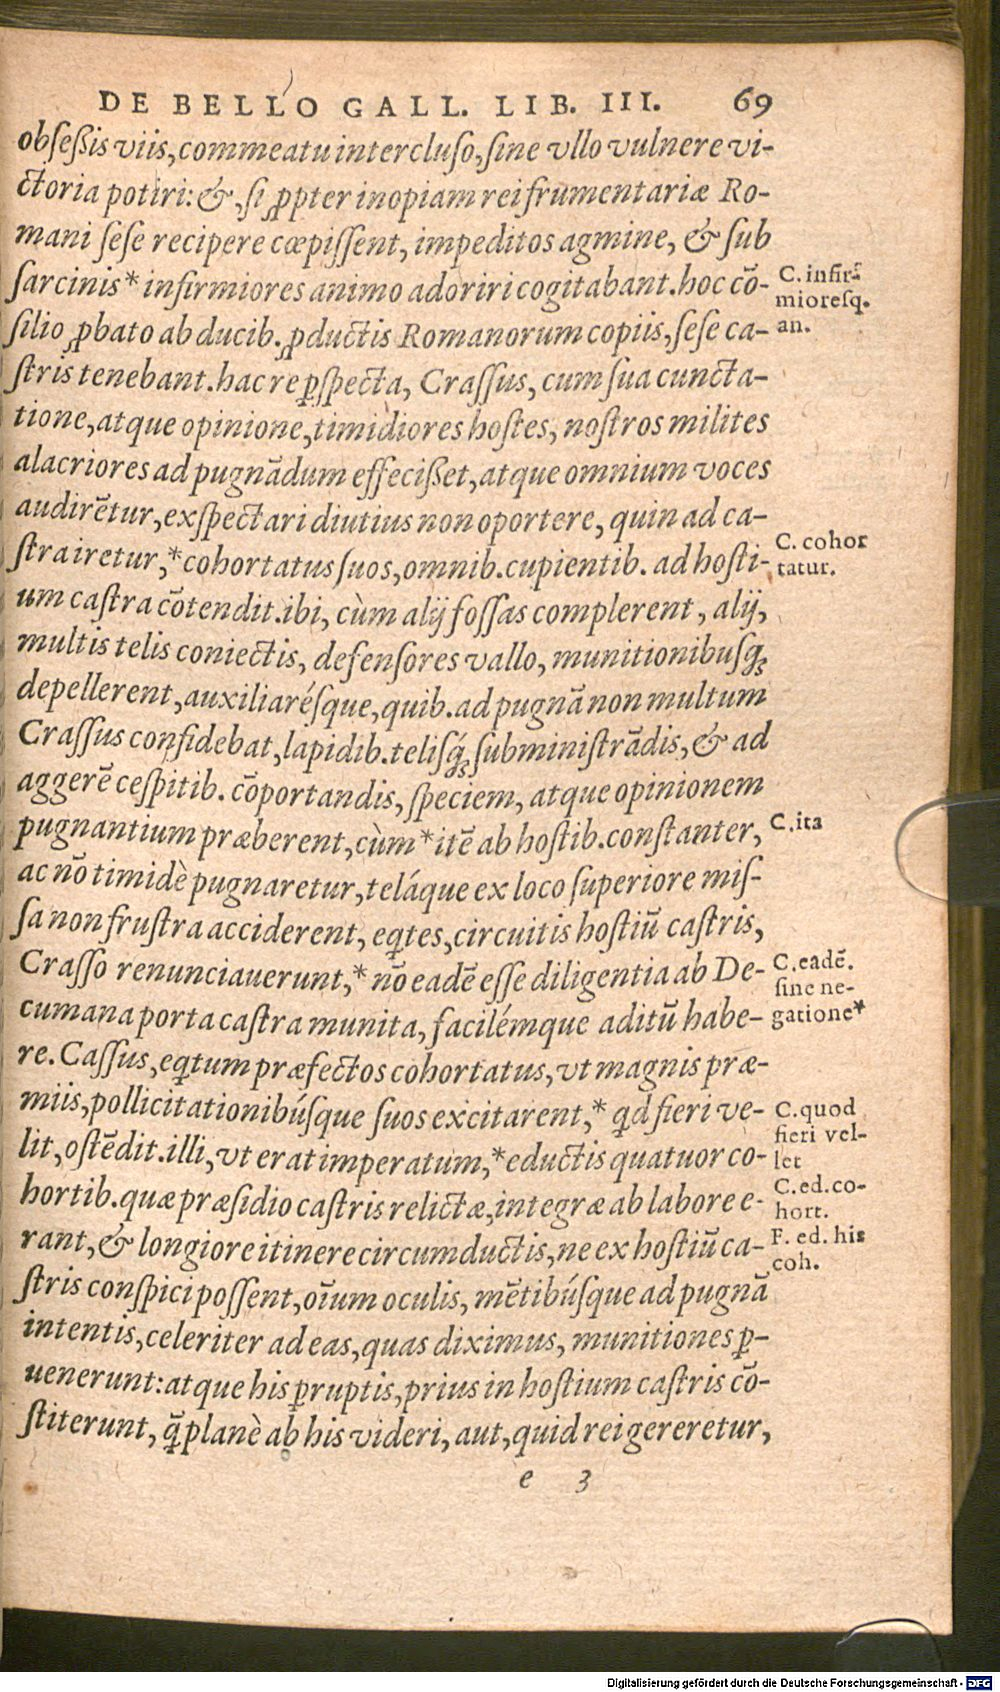 DE BELLO GALL. LIB. III. 69
obſeßis viis, commeatu intercluſo, ſine vllo vulnere vi-
ctoria potiri: &, ſi ꝓpter inopiam rei frumentariæ Ro-
mani ſeſe recipere cœpiſſent, impeditos agmine, & ſub
ſarcinis* infirmiores animo adoriri cogitabant. hoc cō-
C. infirā
mioresq.
an.
ſilio ꝓbato ab ducib. ꝓductis Romanorum copiis, ſeſe ca-
ſtris tenebant. hac re ꝑſpecta, Craſſus, cum ſua cuncta-
tione, atque opinione, timidiores hoſtes, noſtros milites
alacriores ad pugnādum effecißet, atque omnium voces
audirētur, exſpectari diutius non oportere, quin ad ca-
ſtra iretur,* cohortatus ſuos, omnib. cupientib. ad hoſti-
C. cohor
tatur.
um caſtra cōtendit. ibi, cùm alij foſſas complerent, alij,
multis telis coniectis, defenſores vallo, munitionibuſq̃
depellerent, auxiliaréſque, quib. ad pugnā non multum
Craſſus confidebat, lapidib. teliſq́ ſubminiſtrādis, & ad
aggerē ceſpitib. cōportandis, ſpeciem, atque opinionem
pugnantium præberent, cùm* itē ab hoſtib. conſtanter,
C. ita
ac nō timidè pugnaretur, teláque ex loco ſuperiore miſ-
ſa non fruſtra acciderent, eq̃tes, circuitis hoſtiū caſtris,
Craſſo renunciauerunt,* nō eadē eſſe diligentia ab De-
C. eadē.
ſine ne-
gatione*
cumana porta caſtra munita, facilémque aditū habe-
re. Caſſus, eq̃tum præfectos cohortatus, vt magnis præ-
miis, pollicitationibúſque ſuos excitarent,* q̃d fieri ve-
C. quod
fieri vel-
let
lit, oſtēdit. illi, vt erat imperatum,* eductis quatuor co-
C. ed. co-
hort.
hortib. quæ præſidio caſtris relictæ, integræ ab labore e-
F. ed. his
coh.
rant, & longiore itinere circumductis, ne ex hoſtiū ca-
ſtris conſpici poſſent, oīum oculis, mētibúſque ad pugnā
intentis, celeriter ad eas, quas diximus, munitiones ꝑ-
uenerunt: atque his ꝑruptis, prius in hoſtium caſtris cō-
ſtiterunt, q̃̄ planè ab his videri, aut, quid rei gereretur,
e 3
Digitalisierung gefördert durch die Deutsche Forschungsgemeinschaft - DFG